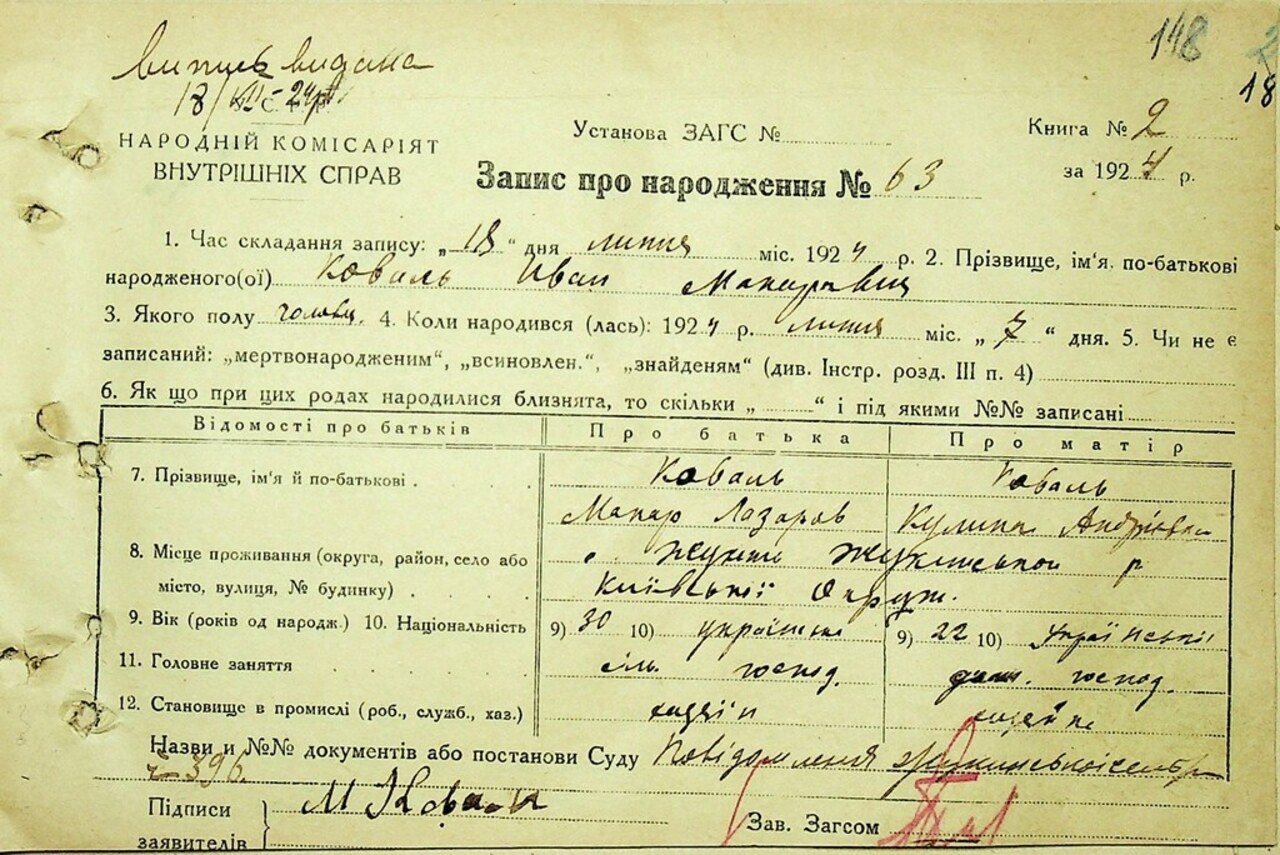 148
18
випись видана
18/VII-24р
У.С.Р.Р.
НАРОДНІЙ КОМІСАРІЯТ
ВНУТРІШНІХ СПРАВ
Установа ЗАГС №
Книга № 2
за 1924 р.
Запис про народження № 63
1. Час складання запису: „18“ дня липня міс. 1924 р. 2. Прізвище, ім'я, по-батькові
народженого(ої) Коваль Иван Макарович
3. Якого полу чоловіч. 4. Коли народився (лась): 1924 р. липня міс. „7“ дня. 5. Чи не є
записаний: „мертвонародженим“, „всиновлен.“, „знайденям“ (див. Інстр. розд. III п. 4)
6. Як що при цих родах народилися близнята, то скільки „ “ і під якими №№ записані
Відомості про батьків Про батька Про матір
7. Прізвище, ім'я й по-батькові Коваль Коваль
Макар Лазаров Кулина Андріївна
8. Місце проживання (округа, район, село або Жукинської р
місто, вулиця, № будинку) Київської Округ.
9. Вік (років од народж.) 10. Національність 9) 30 10) українська 9) 22 10) Української
11. Головне заняття сіль. господ. дом. господ.
12. Становище в промислі (роб., служб., хаз.)
Назви и №№ документів або постанови Суду Повідомлення Жукинської сельр
№ 396
Підписи М Коваль
заявителів
Зав. Загсом